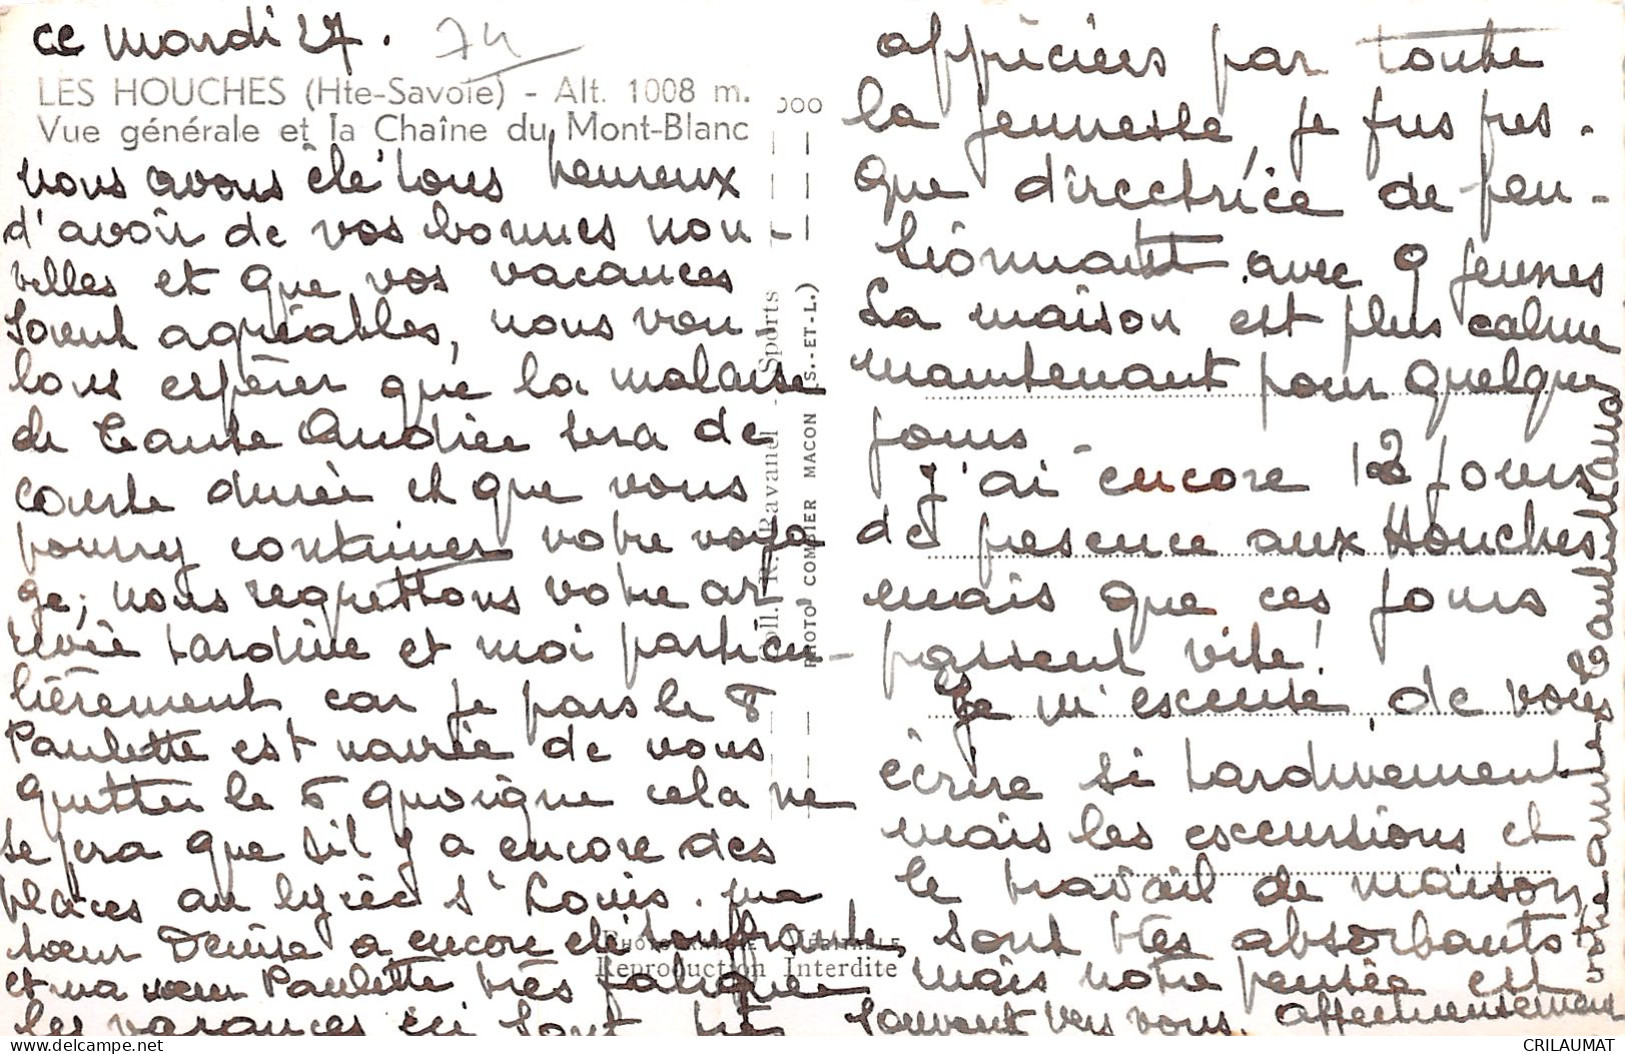 ce mardi 27. 74
LES HOUCHES (Hte-Savoie) - Alt. 1008 m.
Vue générale et la Chaîne du Mont-Blanc
nous avons été tous heureux
d'avoir de vos bonnes nou-
velles et que vos vacances
soient agréables, nous vou
lons espérer que la malaise
de Tante Andrée sera de
courte durée et que vous
pourry continuer votre voya
ge; nous regrettons votre ar
rivée tardive et moi particu-
lièrement car je pars le 8
Paulette est navrée de vous
quitter le 8 quoique cela ne
se fera que s'il y a encore des
places au lycée St Louis. ma
sœur Denise a encore été souffrante,
et ma sœur Paulette très fatiguée
les vacances ici sont très
appréciées par toute
la jeunesse, je fus pres-
que directrice de pen-
sionnat avec 9 jeunes
La maison est plus calme
maintenant pour quelques
jours.
J'ai encore 12 jours
de présence aux Houches
mais que ces jours
passent vite!
Je m'escuse de vous
écrire si tardivement
mais les escursions et
le travail de maison
sont très absorbants
mais notre pensée est
souvent vers vous. affectueusement
votre amie
Coll. R. Ravanel - Sports
PHOTO COMBIER MACON (S.-ET-L.)
Reproduction Interdite
CRILAUMAT